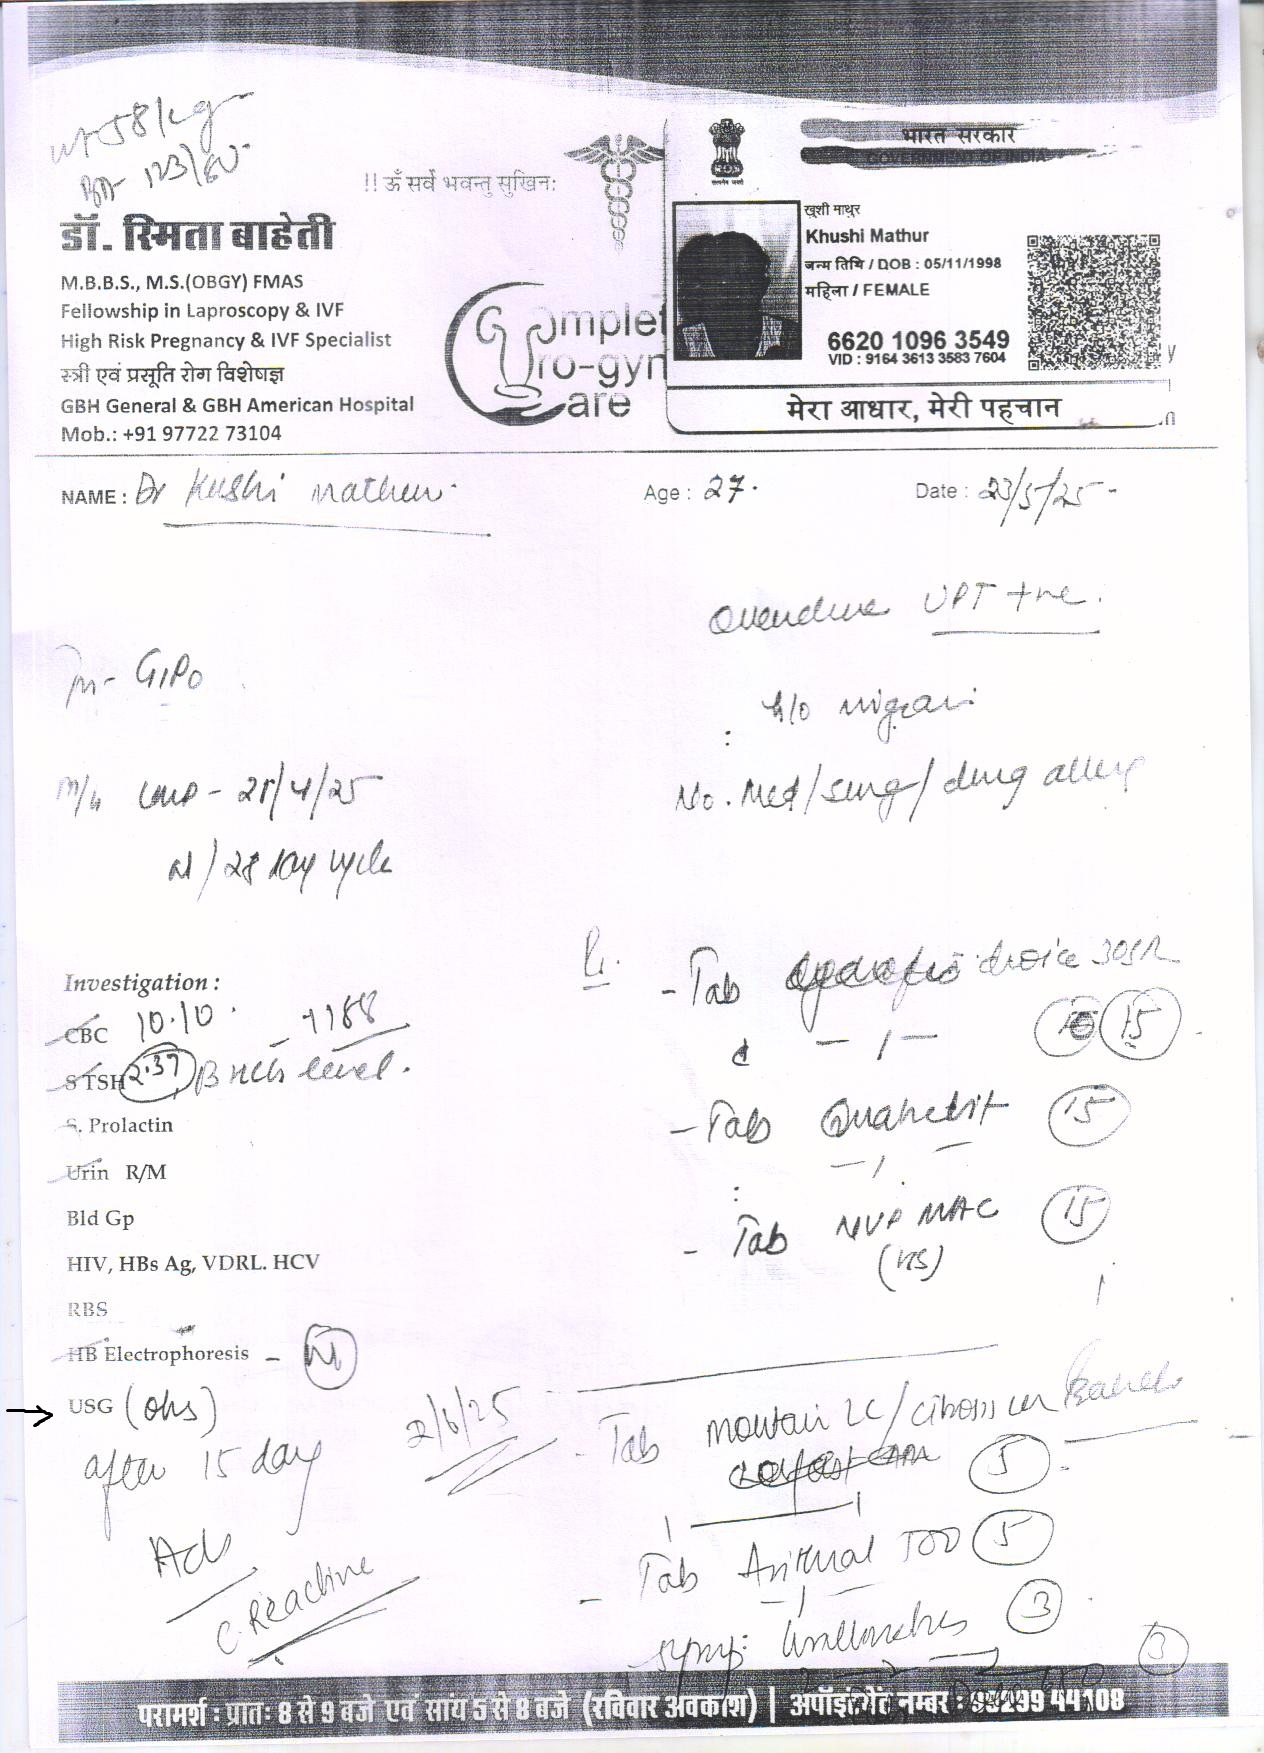 wt 58/kg
BP- 123/60.
!! ॐ सर्वे भवन्तु सुखिनः
डॉ. स्मिता बाहेती
M.B.B.S., M.S.(OBGY) FMAS
Fellowship in Laproscopy & IVF
High Risk Pregnancy & IVF Specialist
स्त्री एवं प्रसूति रोग विशेषज्ञ
GBH General & GBH American Hospital
Mob.: +91 97722 73104
omplet
ro-gyn
are
भारत सरकार
GOVERNMENT OF INDIA
खुशी माथुर
Khushi Mathur
जन्म तिथि / DOB : 05/11/1998
महिला / FEMALE
6620 1096 3549
VID : 9164 3613 3583 7604
मेरा आधार, मेरी पहचान
NAME : Dr Kushi Mathur.
Age : 27.
Date : 23/5/25-
Overdue UPT +ve.
G1P0
h/o
No. Med/surg/drug allergy
m/h LMP - 4/25
N/28 day cycle
Investigation :
CBC 10.10.
S TSH 2.37 B HCG level. - 1188
S. Prolactin
Urin R/M
Bld Gp
HIV, HBs Ag, VDRL. HCV
RBS
HB Electrophoresis - N
USG (obs)
after 15 day
Adv
C-Reactive
Tab choice 15
- Tab 15
- Tab NVP MAC 15
2/6/25
- Tab Montair LC/ 5
- Tab 5
Syrup: 3
3
परामर्श : प्रातः 8 से 9 बजे एवं सायं 5 से 8 बजे (रविवार अवकाश) | अपॉइंटमेंट नम्बर : 44108